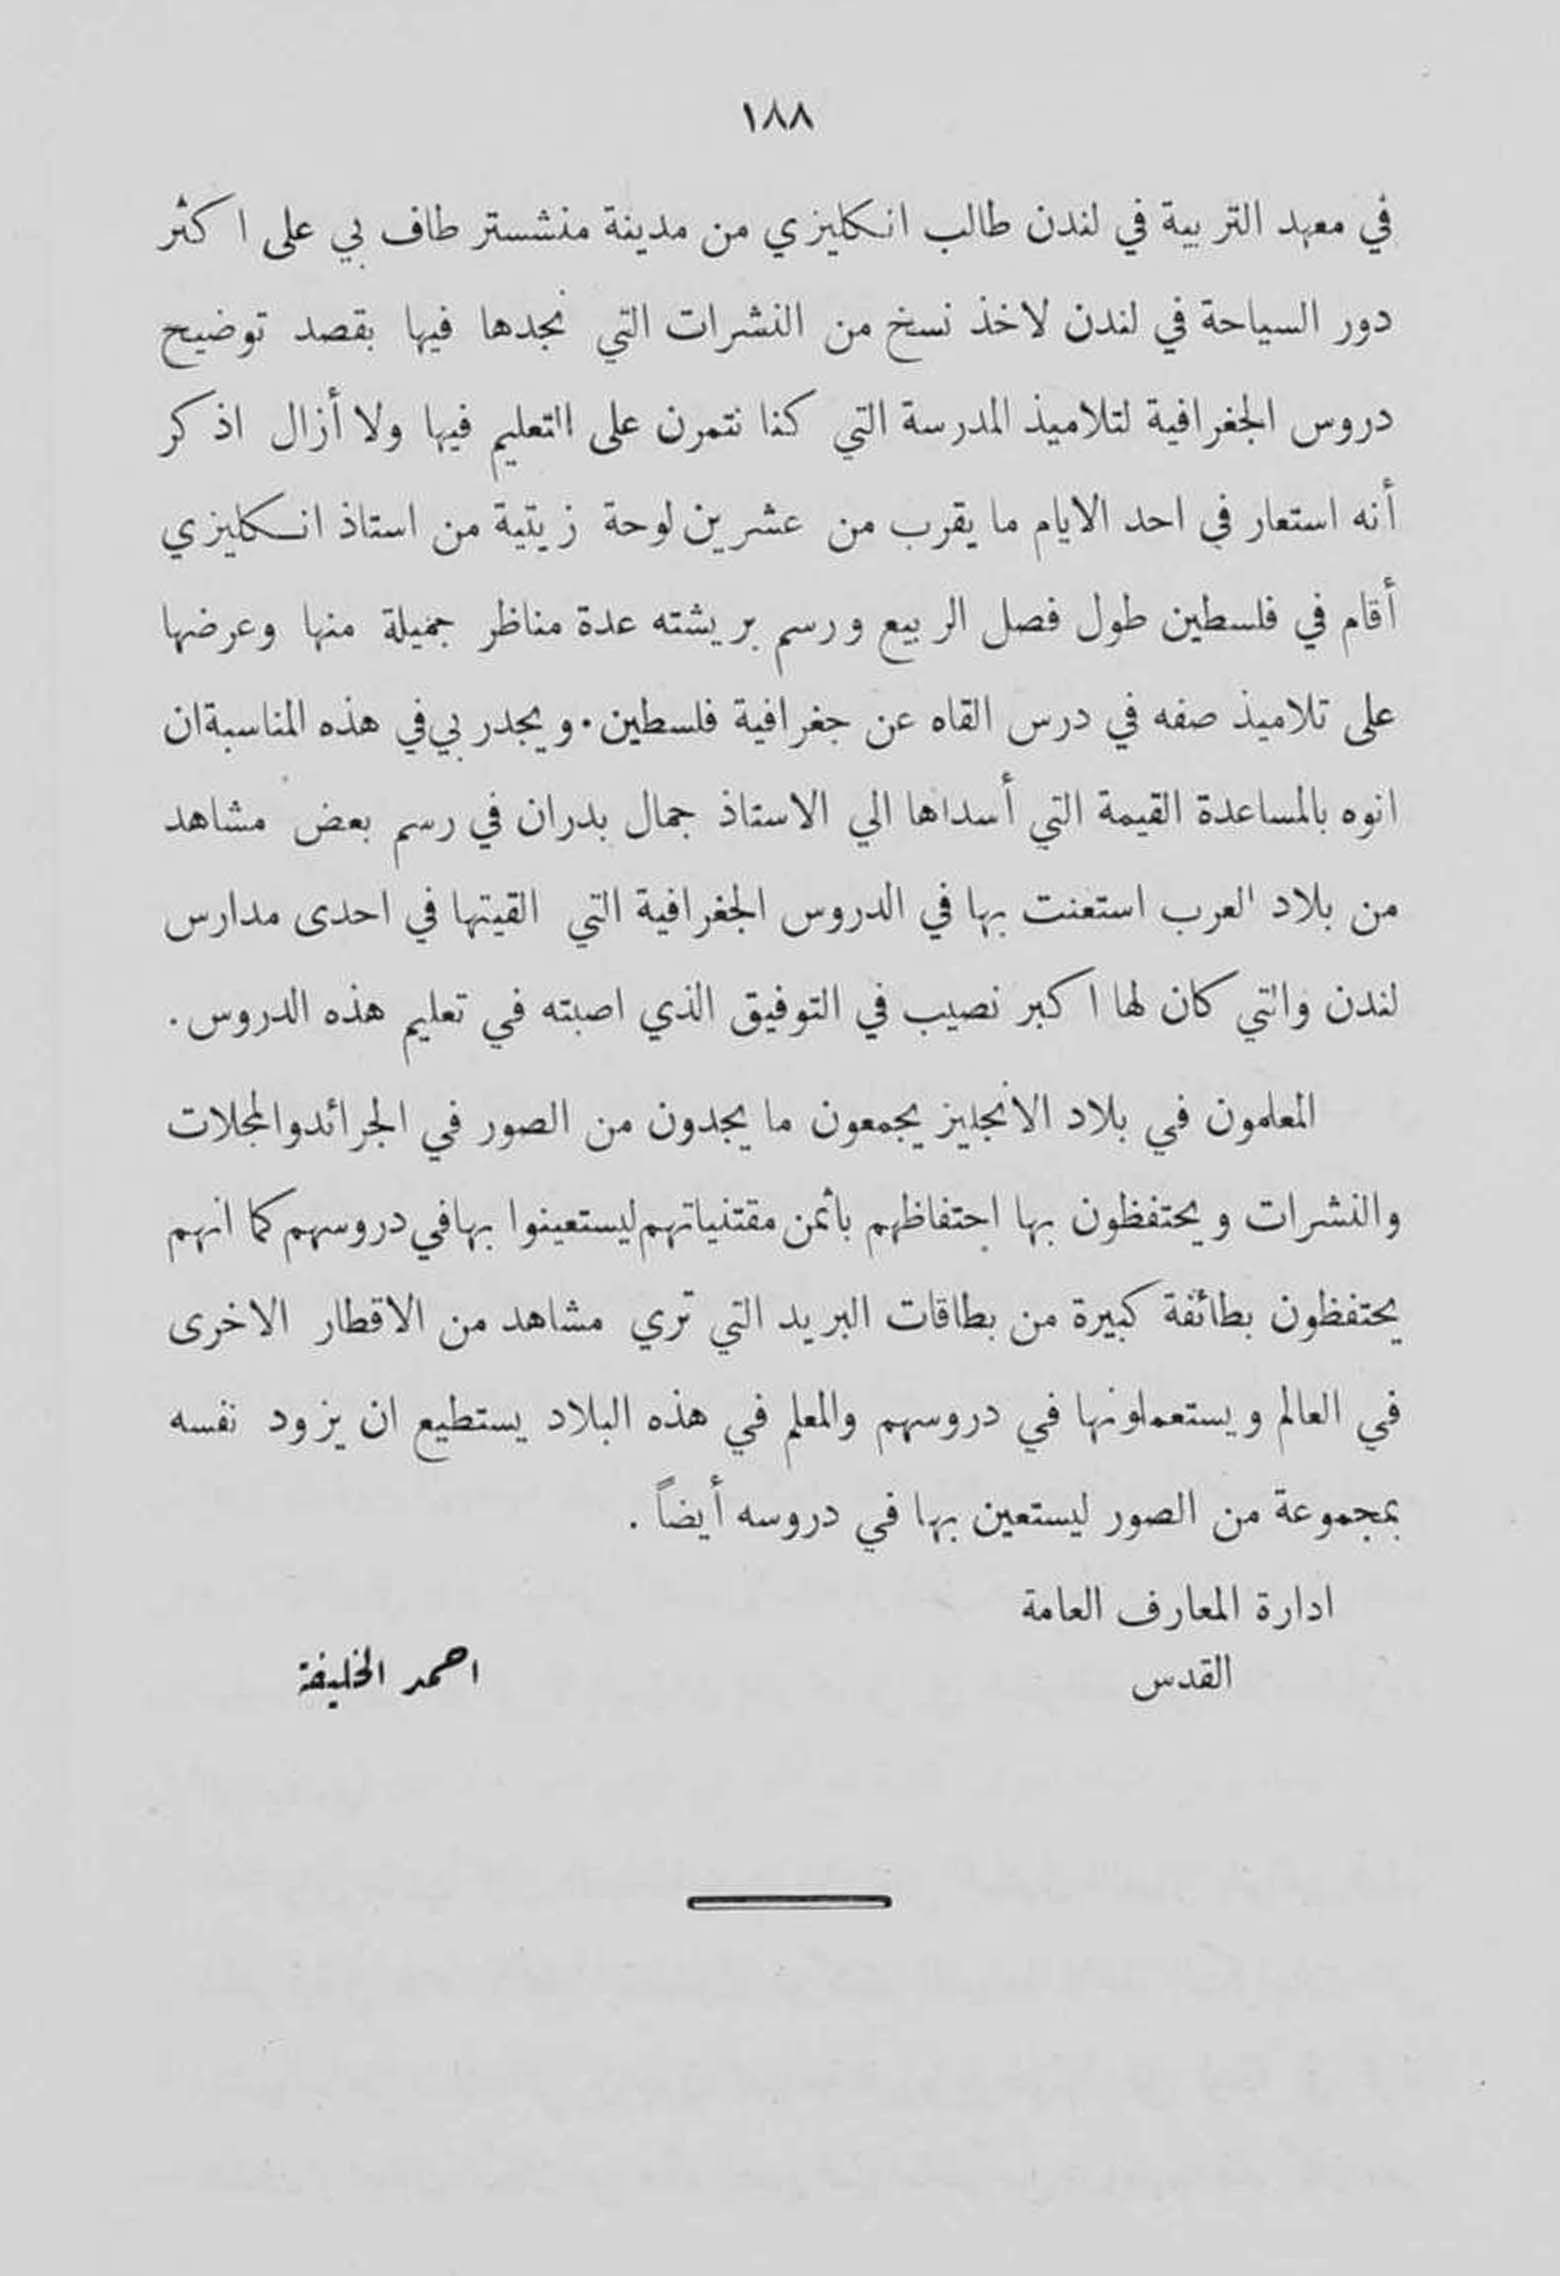 ١٨٨
في معهد التربية في لندن طالب انكليزي من مدينة منشستر طاف بي على اكثر
دور السياحة في لندن لاخذ نسخ من النشرات التي نجدها فيها بقصد توضيح
دروس الجغرافية لتلاميذ المدرسة التي كنا نتمرن على التعليم فيها ولا أزال اذكر
أنه استعار في احد الايام ما يقرب من عشرين لوحة زيتية من استاذ انكليزي
أقام في فلسطين طول فصل الربيع ورسم بريشته عدة مناظر جميلة منها وعرضها
على تلاميذ صفه في درس القاه عن جغرافية فلسطين. ويجدر بي في هذه المناسبة ان
انوه بالمساعدة القيمة التي أسداها الي الاستاذ جمال بدران في رسم بعض مشاهد
من بلاد العرب استعنت بها في الدروس الجغرافية التي القيتها في احدى مدارس
لندن والتي كان لها اكبر نصيب في التوفيق الذي اصبته في تعليم هذه الدروس.
المعلمون في بلاد الانجليز يجمعون ما يجدون من الصور في الجرائد والمجلات
والنشرات ويحتفظون بها احتفاظهم بأثمن مقتنياتهم ليستعينوا بها في دروسهم كما انهم
يحتفظون بطائفة كبيرة من بطاقات البريد التي تري مشاهد من الاقطار الاخرى
في العالم ويستعملونها في دروسهم والمعلم في هذه البلاد يستطيع ان يزود نفسه
بمجموعة من الصور ليستعين بها في دروسه أيضاً.
ادارة المعارف العامة
القدس
احمد الخليفة